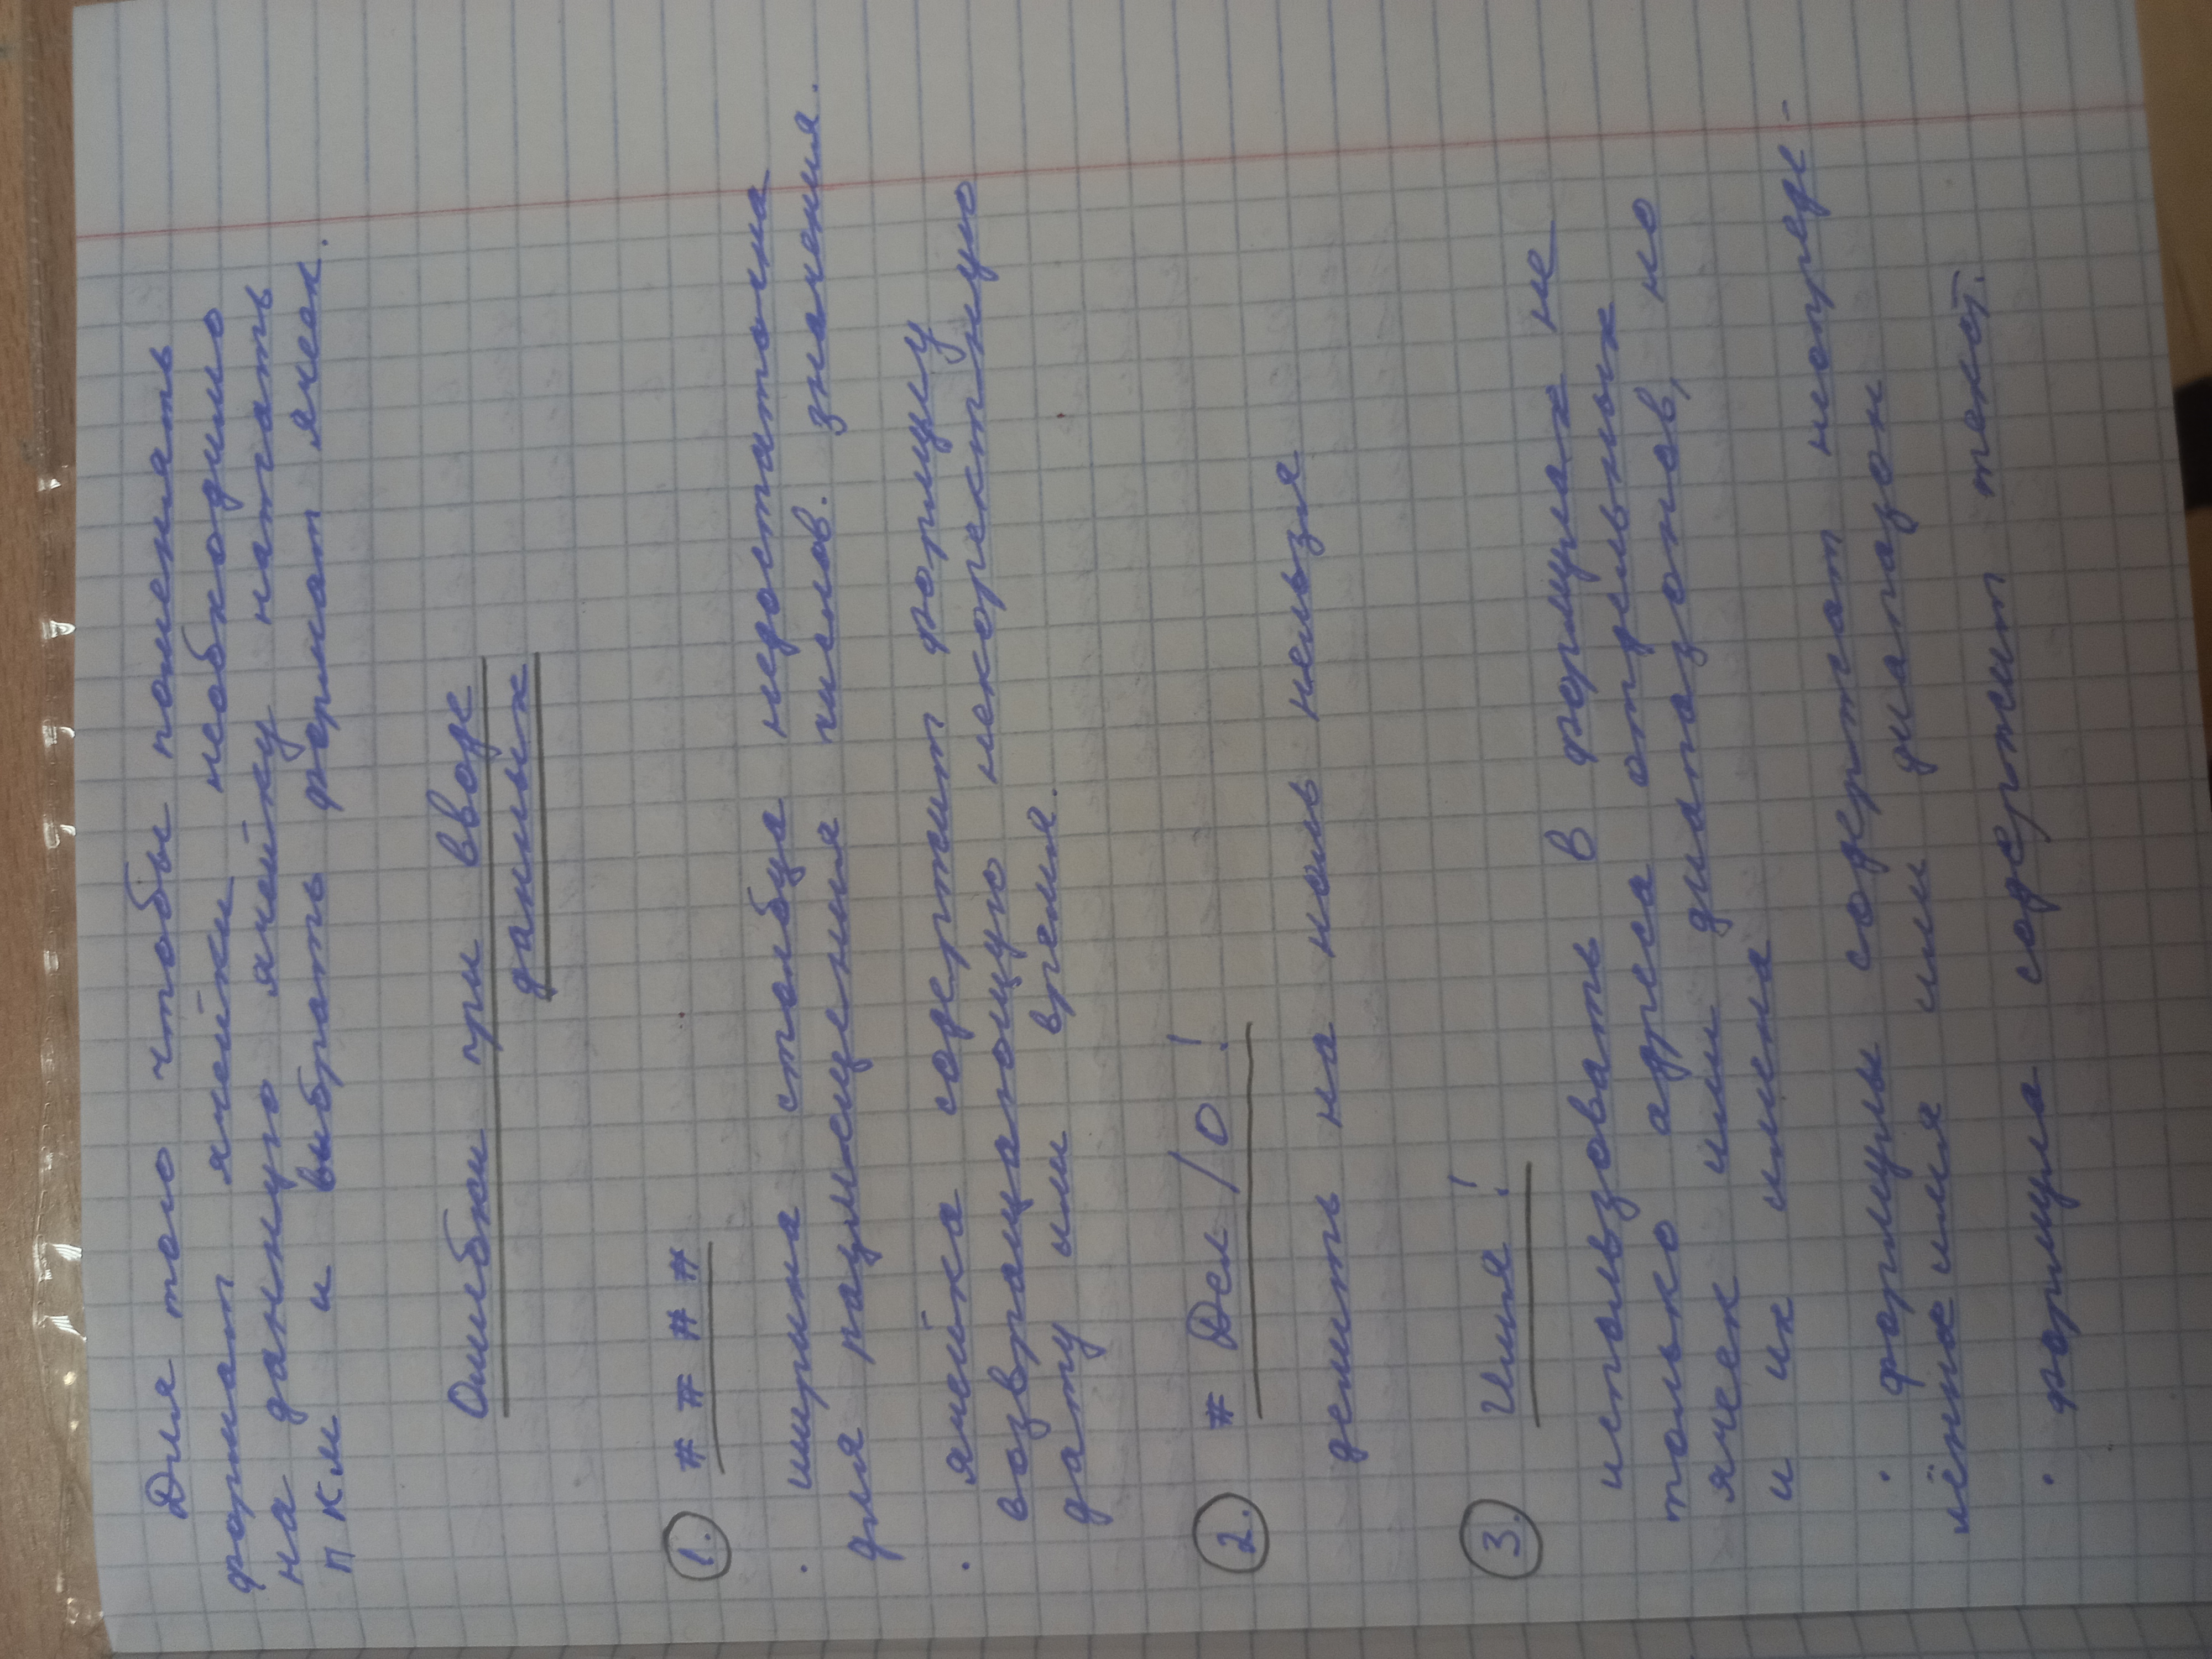 Для того чтобы поменять
формат ячейки необходимо
на данную ячейку нажать
ПКМ и выбрать формат ячеек.
Ошибки при вводе
данных
1. # # # #
· ширина столбца недостаточна
для размещения числов. значения.
· ячейка содержит формулу
возвращающую некоректную
дату или время.
2. # Дел / 0 !
делить на ноль нельзя
3. Имя !
использовать в формулах не
только адреса отдельных
ячеек или диапазонов, но
и их имена
· формулы содержат неопреде-
лённое имя или диапазон
· формула содержит текст.